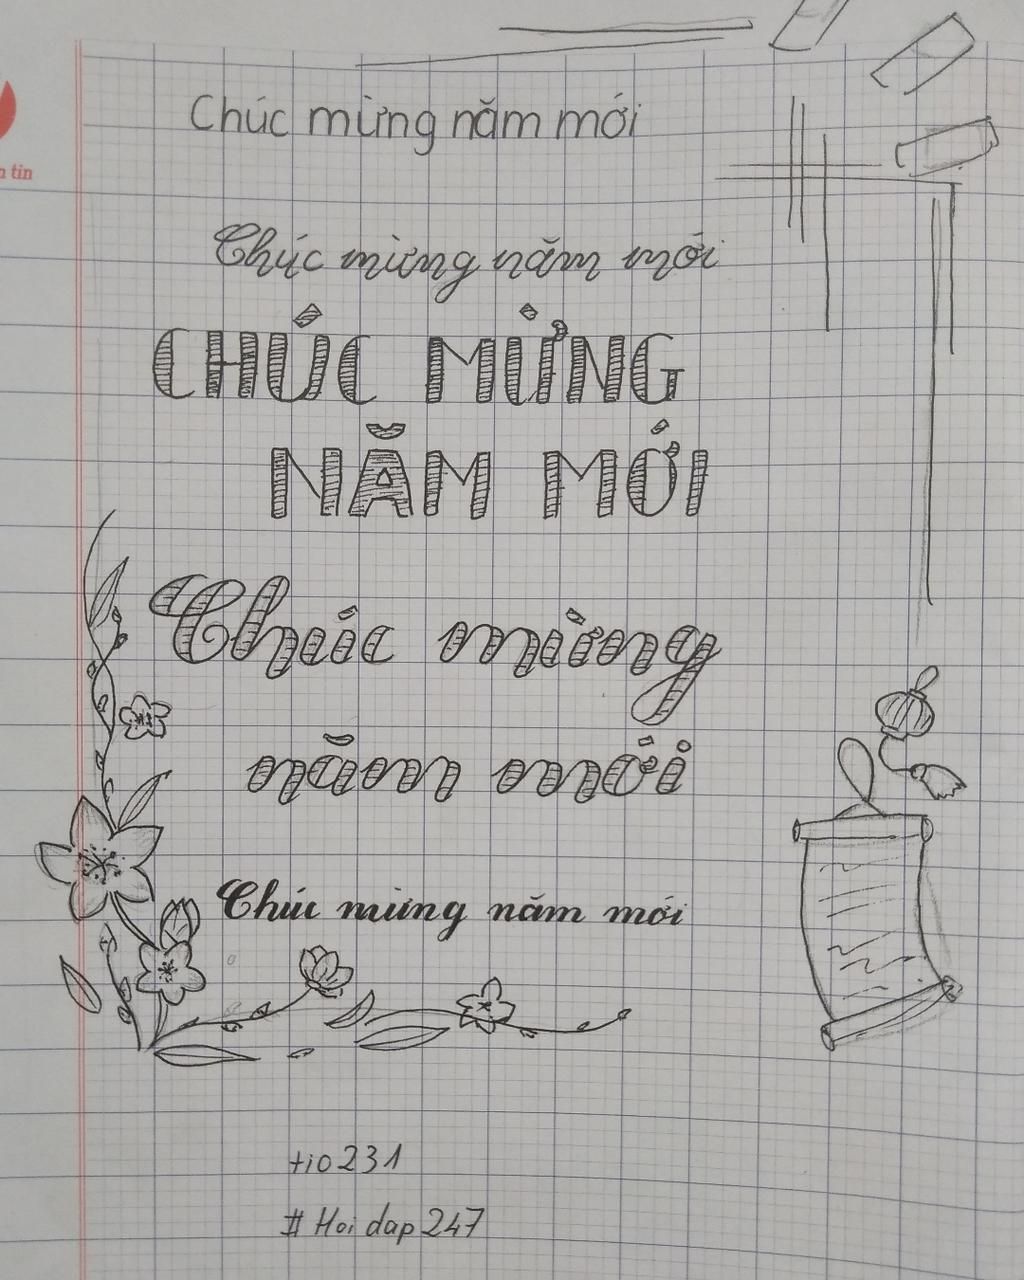 n tin
Chúc mừng năm mới
Chúc mừng năm mới
CHÚC MỪNG
NĂM MỚI
Chúc mừng
năm mới
Chúc mừng năm mới
tio231
# Hoi dap 247